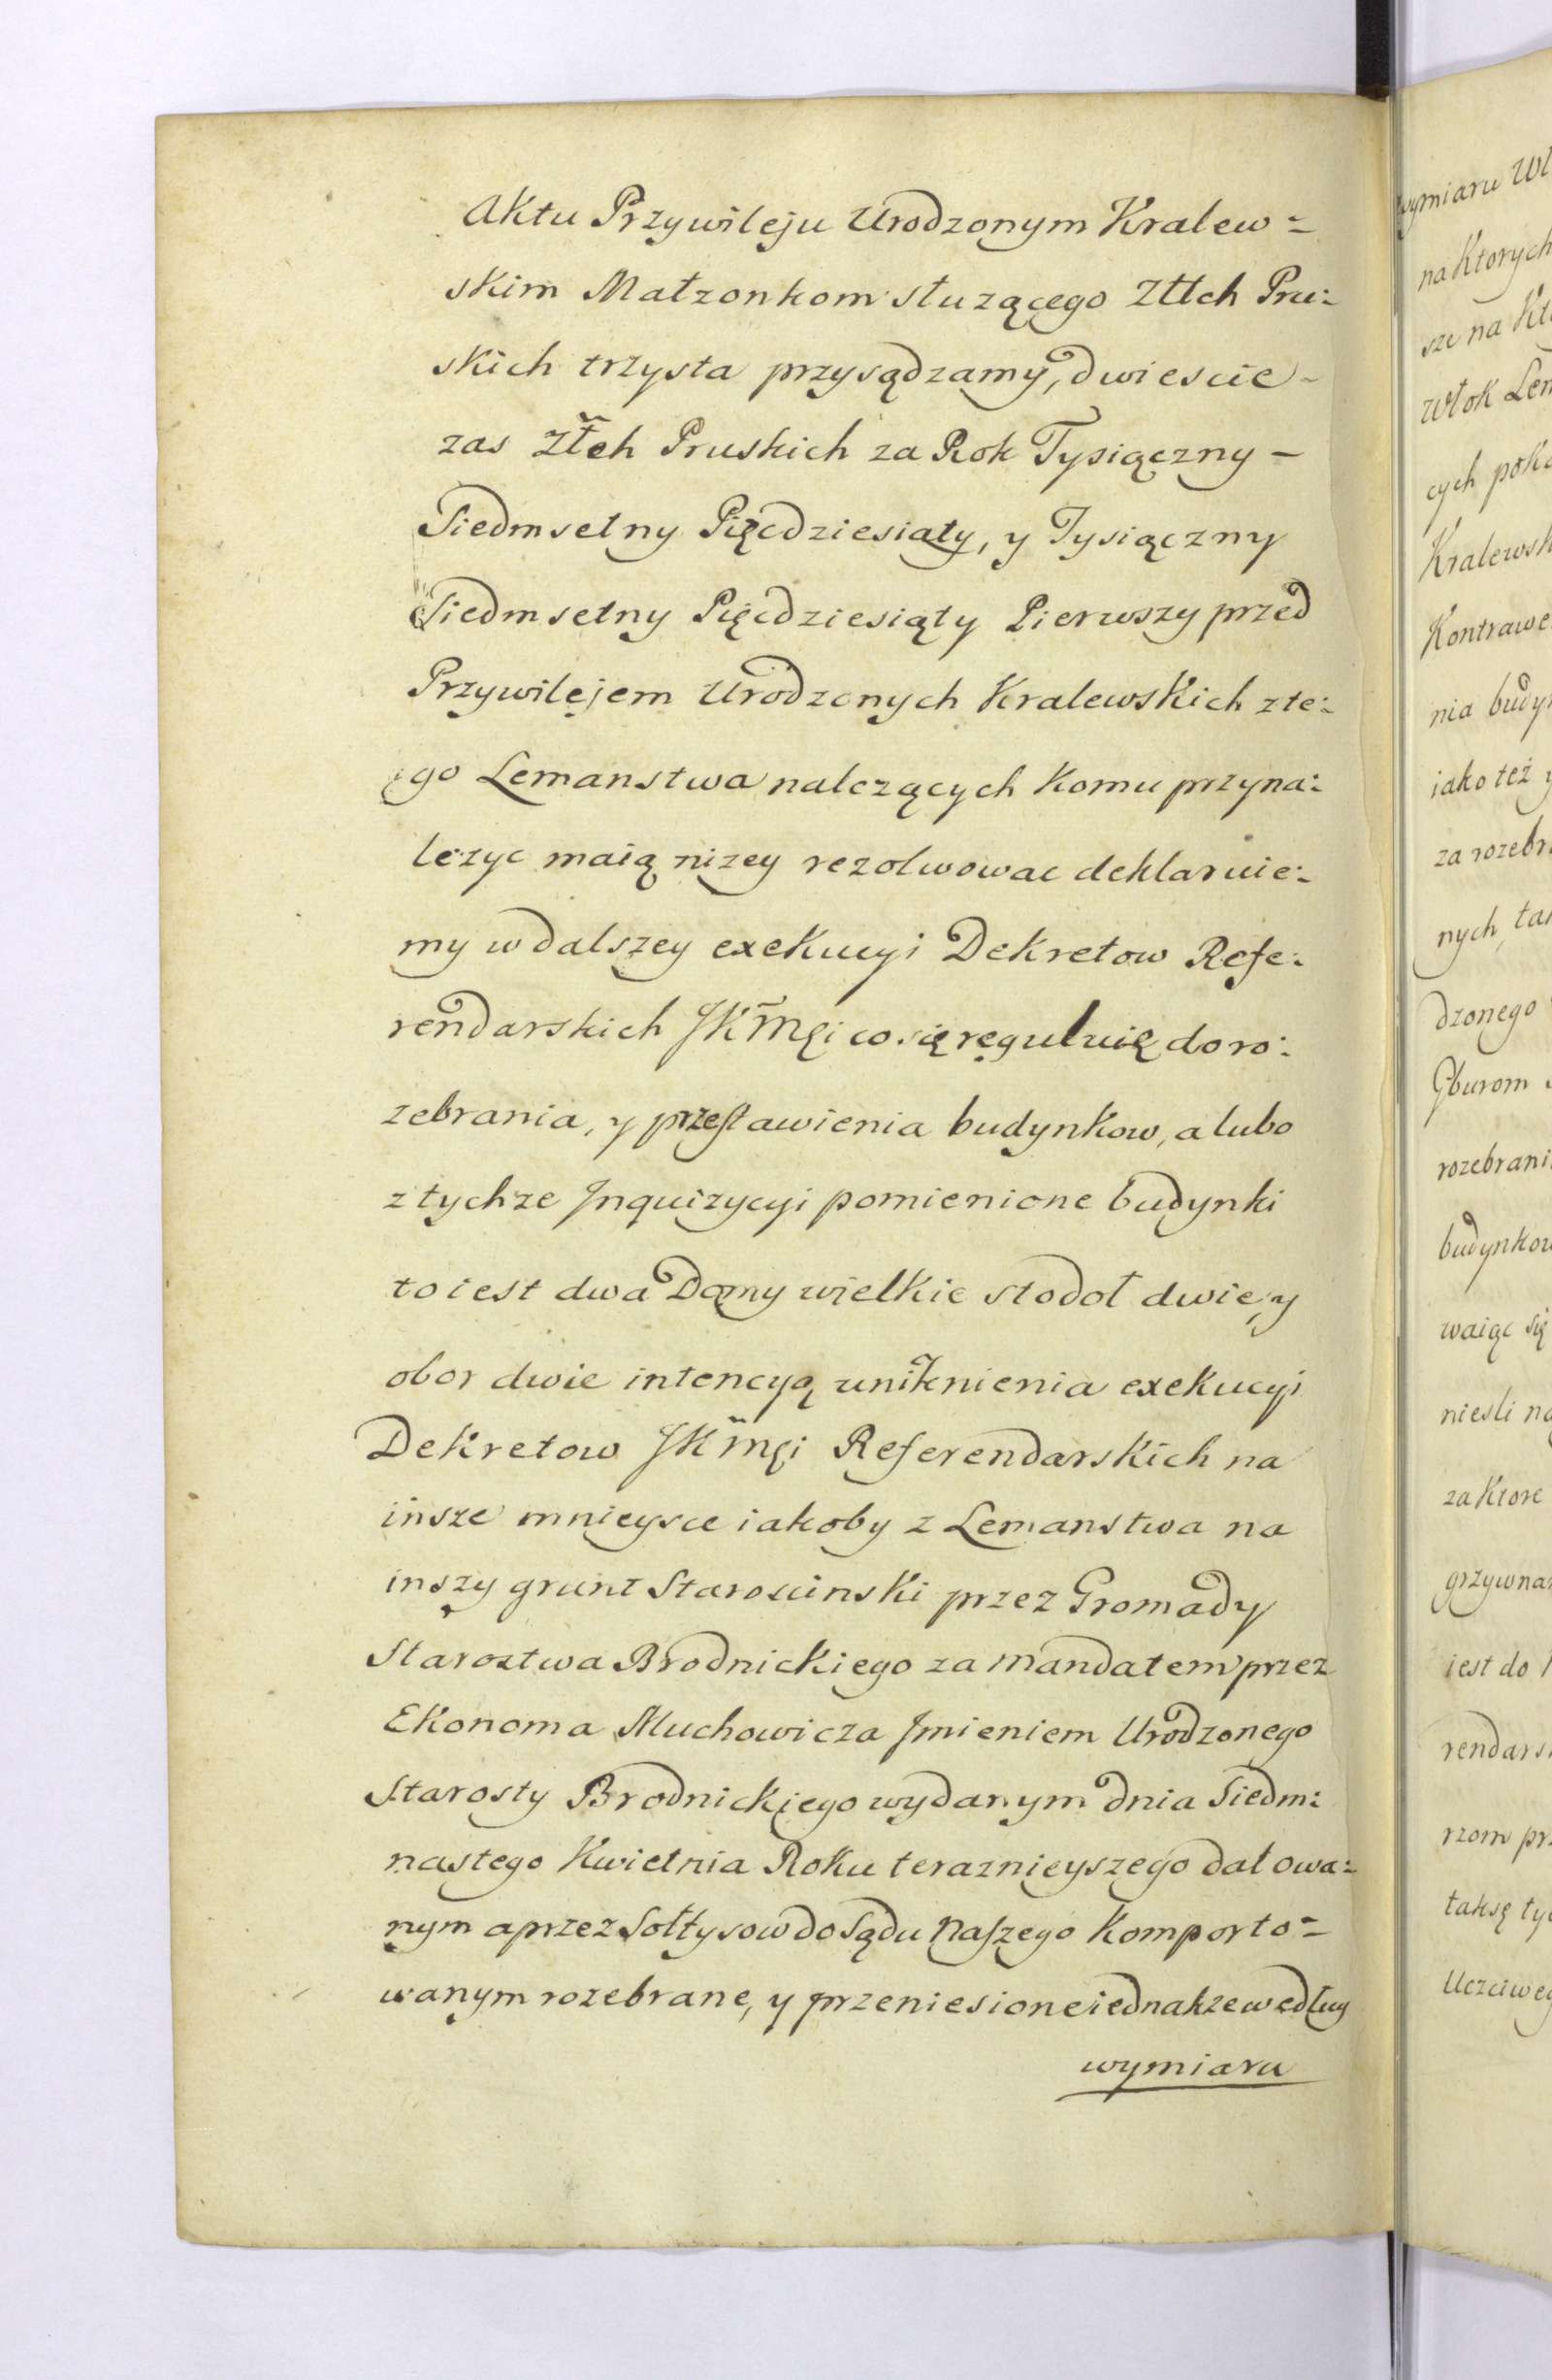 Aktu Przywileju Urodzonym Kralew=
skim Małzonkom słuzącego Złłch Pru:
skich trzysta przysądzamy, dwiescie-
zas Złch Pruskich za Rok Tysiączny-
Siedmsetny Pięcdziesiąty, y Tysiączny
Siedmsetny Pięcdziesiąty Pierwszy przed
Przywilejem Urodzonych Kralewskich zte:
go Lemanstwa nalezących komu przyna:
lezyc maią nizey rezolwowac deklaruie:
my w dalszey exekucyi Dekretow Refe:
rendarskich JKMęi co się ręguluię do ro:
zebrania, y przestawienia budynkow, a lubo
z tychze Jnquizycyi pomienione budynki
to iest dwa Domy wielkie stodoł dwie, y
obor dwie intencyą uniknienia exekucyi
Dekretow JKMęi Referendarskich na
insze mnieysce iakoby z Lemanstwa na
inszy grunt Staroscinski przez Gromady
Starostwa Brodnickiego za mandatem przez
Ekonoma Muchowicza Jmieniem Urodzonego
Starosty Brodnickiego wydanym dnia Siedm:
nastego Kwietnia Roku teraznieyszego datowa:
nym a przez Sołtysow do Sądu Naszego komporto=
wanym rozebrane, y przeniesione iednakze według
wymiaru
wymiaru Wł
na Ktorych
sze na Kt
Włok Lem
cych poka
Kralewsk
Kontrawe
nia budyn
iako też y
za rozebr
nych, tak
dzonego
Gburom
rozebrani
budynkow
waiąc się
niesli na
za Ktore
grzywna
iest do
rendars
rzom pr
taksę ty
Uczciweg